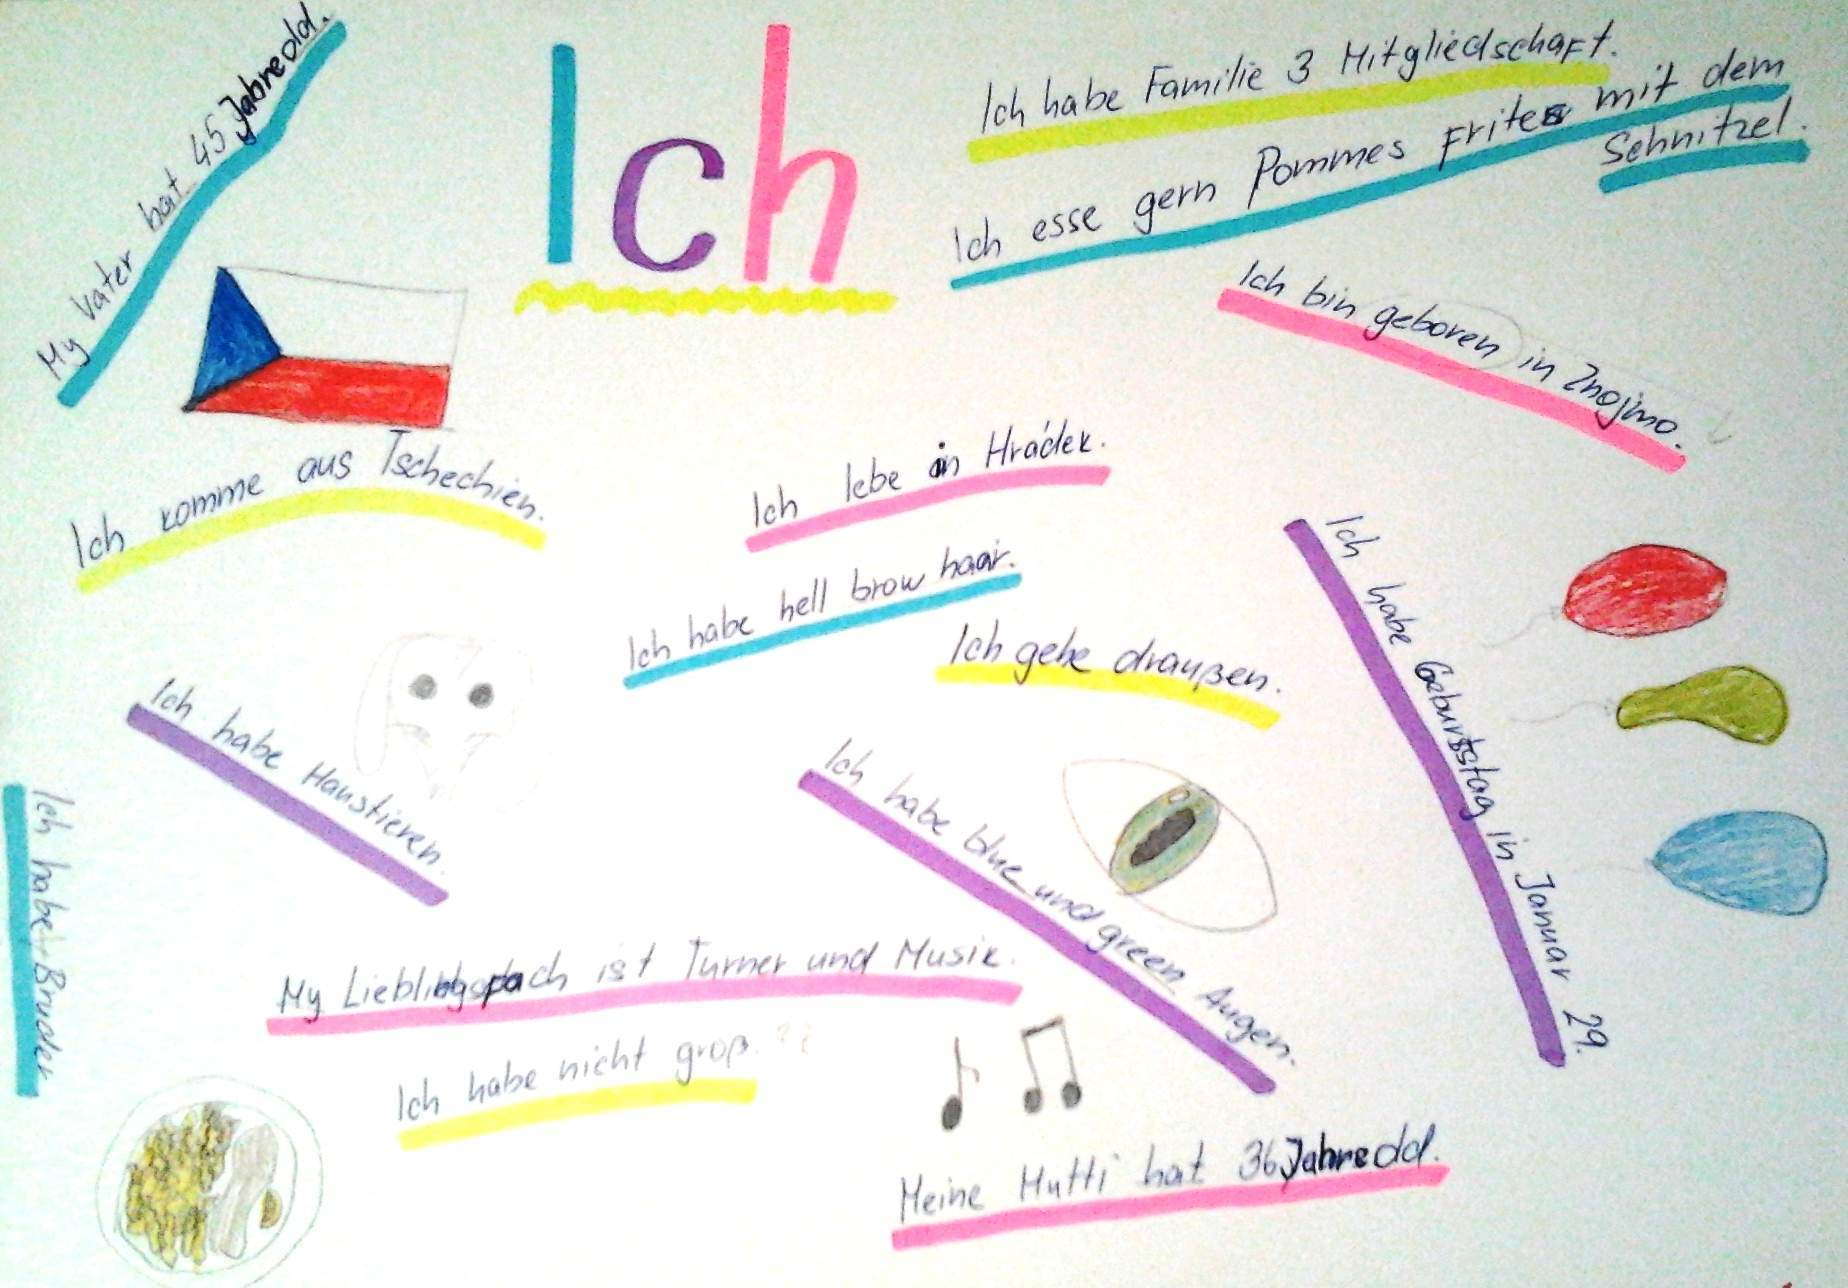 Ich
My Vater hat 45 Jahre old.
Ich habe Familie 3 Mitgliedschaft.
Ich esse gern Pommes Frites mit dem
Schnitzel.
Ich bin geboren in Znojmo.
Ich komme aus Tschechien.
Ich lebe in Hrádek.
Ich habe hell brow haar.
Ich gehe draußen.
Ich habe Geburtstag in Januar 29.
Ich habe Haustieren.
Ich habe blue und green Augen.
Ich habe Bruder
My Lieblingsfach ist Turner und Musik.
Ich habe nicht groß. ??
Meine Mutti hat 36 Jahre old.